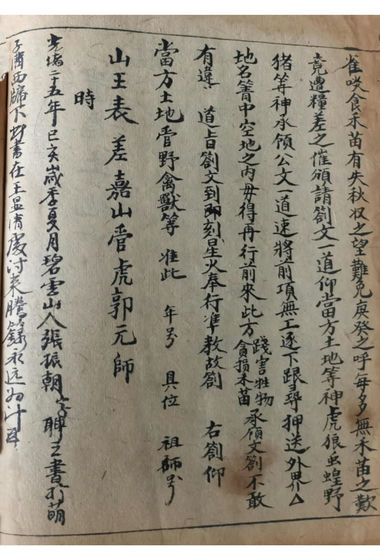 雀咬食禾苗有失秋收之望難免庚癸之呼毋多無禾苗之歎
竟遭糧差之催頒請劄文一道仰當方土地等神虎娘虫蝗野
猪等神承領公文一道速將前項無工逐下跟尋押送外界厶
地名菁中空地之内毋得再行前來此方踐害牲物貪損禾苗承領文劄不敢
有違 道旨劄文到即刻星火奉行准教故劄 右劄仰
當方土地管野禽獸等 准此 年号 具位 祖師号
山王表差嘉山管虎郭元師
時
光緒二十五年己亥歲季夏月碧雲山人張振朝
子 西 書在王显清處討來謄錄永远为计